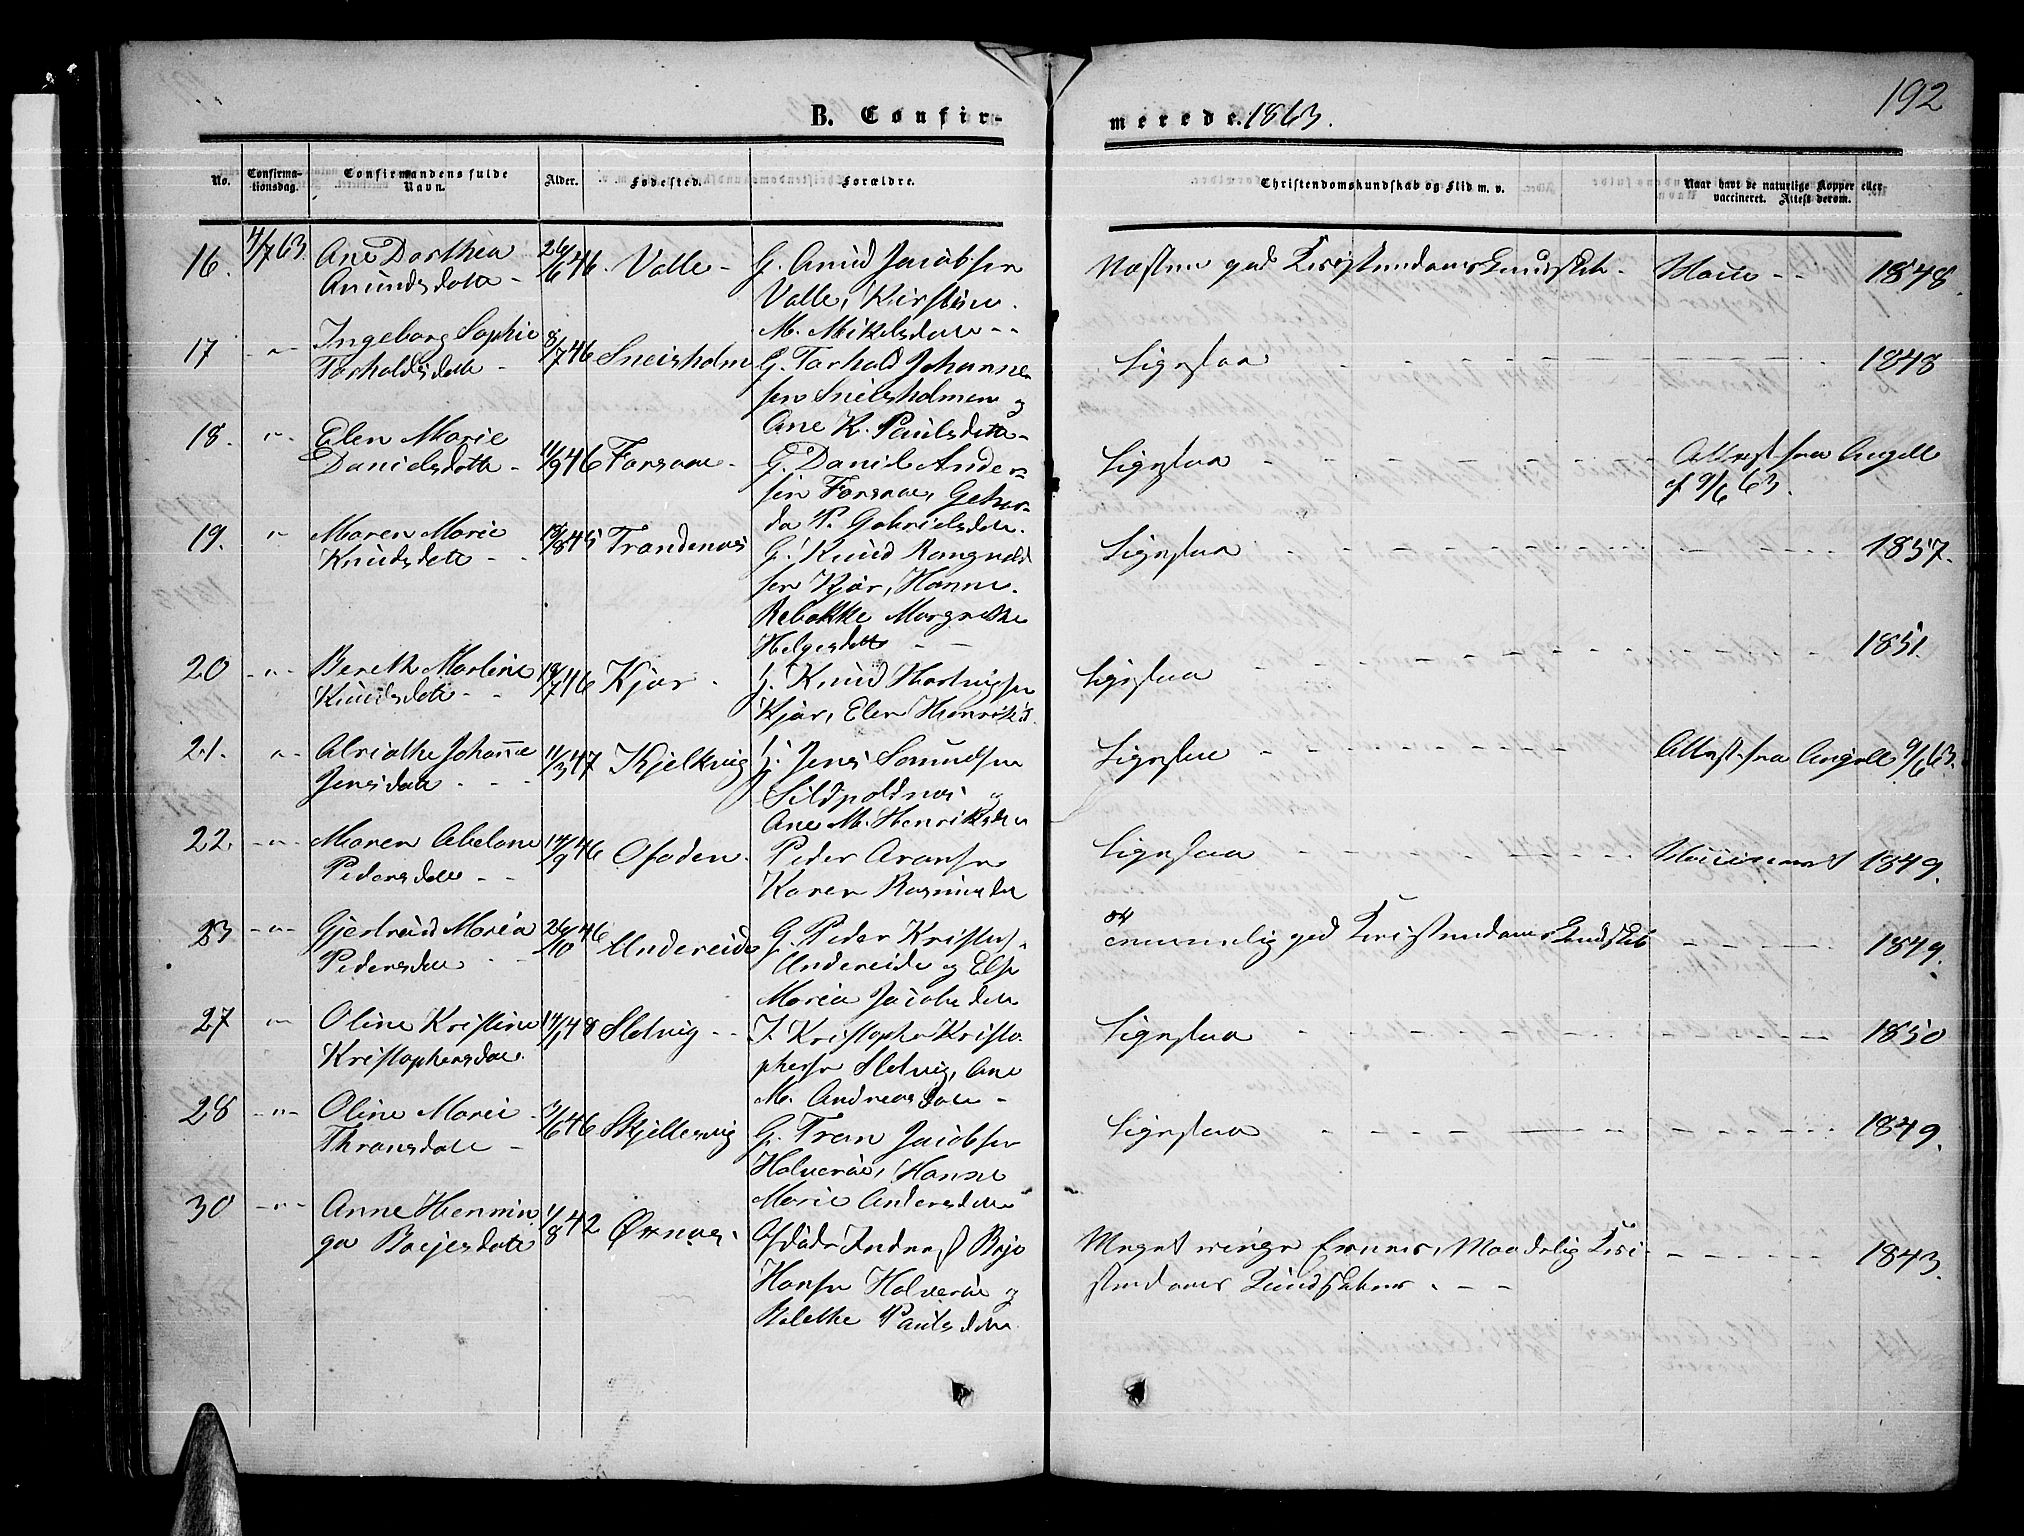 192
B. Confir-
merede. 1863.
No.
Confirma-
tionsdag.
Confirmandens fulde
Navn.
Alder.
Fødested.
Forældre.
Christendomskundskab og Flid m. v.
Naar havt de naturlige Kopper eller
vaccineret. Attest derom.
16. 4/7 63. Ane Dorthea
Amundsdatte - 26/6 46. Valle -
G. Amud Jacobsen
Valle, Kirstine
M. Mikelsdatte - -
Næsten god Kristendomskundskab -
1848.
17 - " - Ingeborg Sophie
Torholdsdatte - 8/7 46 Sneisholm
G. Torhold Johanne-
sen Sneisholmen og
Ane K. Paulsdatte -
Ligesaa - - - 1848
18. - " - Elen Marie
Danielsdatte - 11/9 46 Forsaae -
G. Daniel Ander-
sen Forsaae, Gehar-
da P. Gabrielsdatte.
Ligesaa - - -
Attest fra Angell
af 9/6 63.
19. " Maren Marie
Knudsdatte - - 18/8 45 Trondenæs
G. Knud Rangnald
sen Kjær, Hanne
Rebekke Margrethe
Helgesdatte - -
Ligesaa - - - 1857.
20 - " - Bereth Martine
Knudsdatte - - 18/7 46 Kjær -
G. Knud Hartvigsen
Kjær, Elen Henriksd.
Ligesaa
1851.
21. " Alriathe Johanne
Jensdatte - - - 11/3 47 Kjelkvig
G. Jens Somundsen
Sildpoldnes og
Ane M. Henriksdatte
Ligesaa - - - Attest fra Angell 9/6 63.
22. - " - Maren Abelone
Pedersdatte - - 14/9 46 Ofoden.
Peder Aronsen
Karen Rasmusdatte
Ligesaa - - - 1849.
23 - " - Gjertruid Maria
Pedersdatte - - 26/10 46 Undereide
G. Peder Kristens.
Undereide og Else
Maria Jacobsdatte
god Kristendomskundskab - - - 1849.
27 " Oline Kristine
Kristophersdatte. 14/1 48 Sletvig - -
I. Kristopher Kristo-
phersen Sletvig, Ane
M. Andreasdatte -
Ligesaa - - - 1850
28 - " - Oline Marei
Thronsdatte - /6 46 Skjellesvig
G. Tron Jacobsen
Halverøe, Hanne
Marie Andersdatte
Ligesaa - - - 1849.
30 - " - Anne Hennin
ga Boejesdatte 1/8 42 Ørnæs.
Boje
Hansen Halverøe og
Beletha Paulsdatte
Meget ringe Evner, Maadelig Kri-
stendoms Kundskaber. - - - 1843.